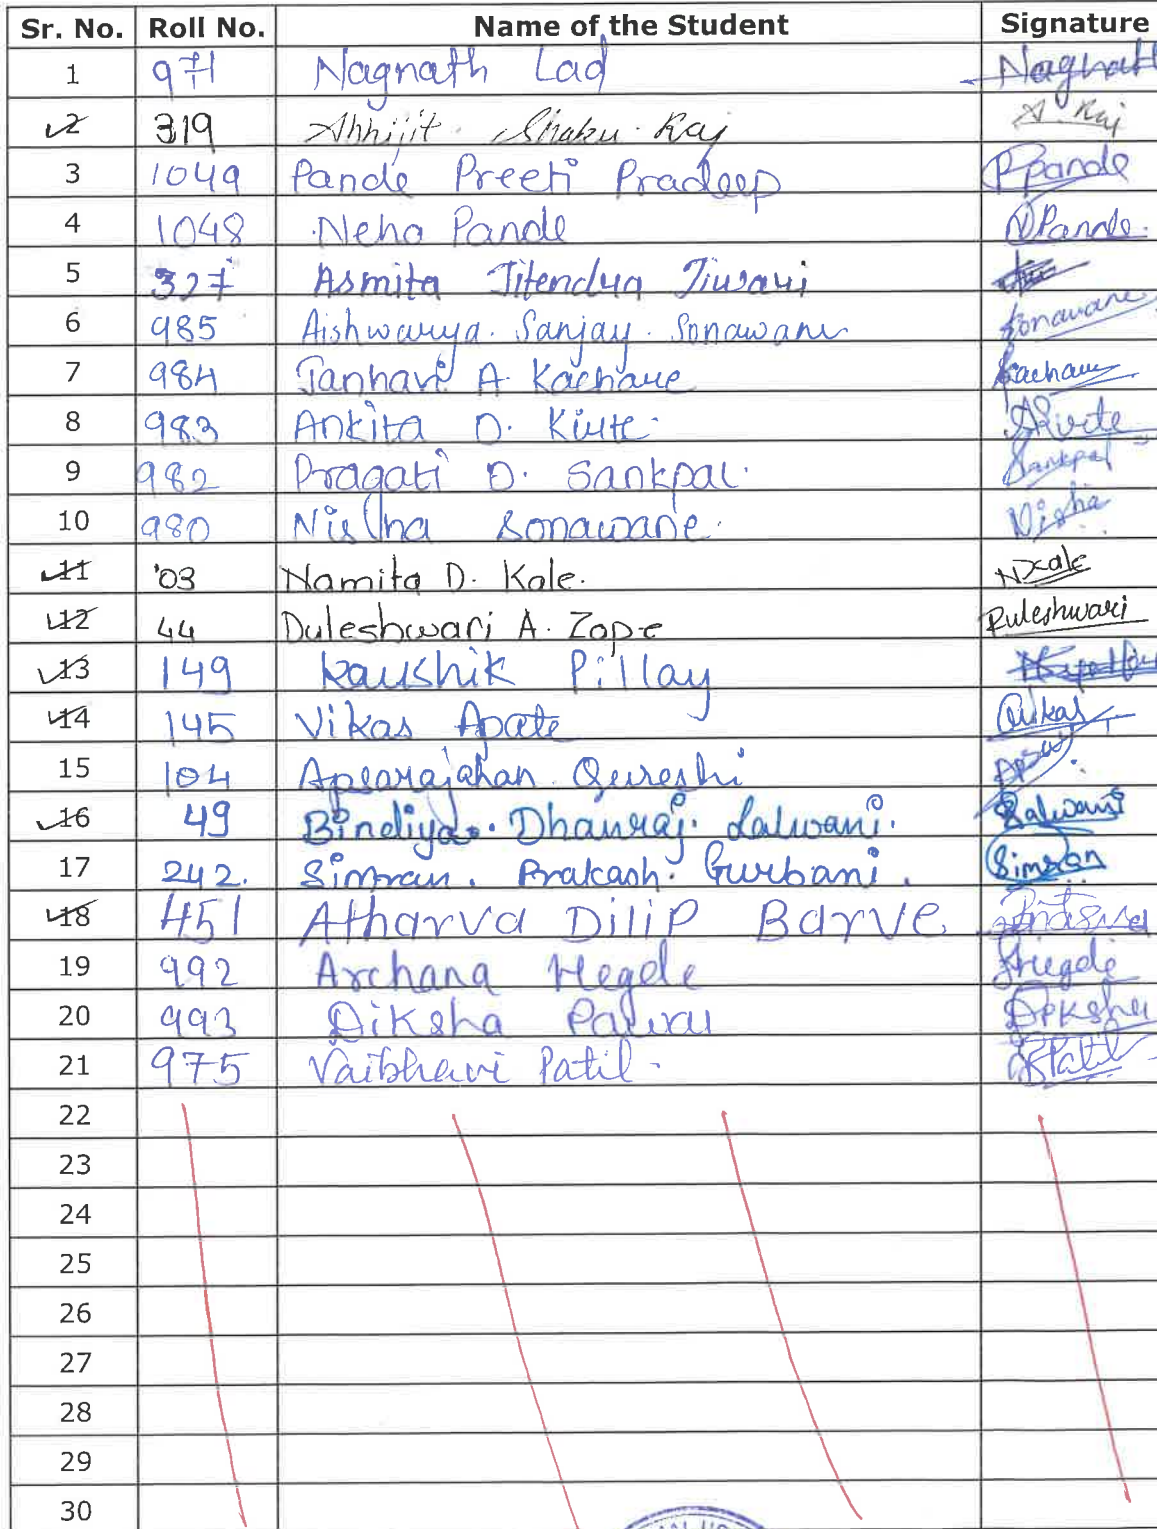 Sr. No. Roll No. Name of the Student Signature
1 971 Nagnath Lad Nagnath
2 319 Abhijit Shaku Raj A Raj
3 1049 Pande Preeti Pradeep Ppande
4 1048 Neha Pande NPande
5 327 Asmita Jitendra Tiwari
6 985 Aishwarya. Sanjay. Sonawane Sonawane
7 984 Janhavi A. Kachare Kachare
8 983 Ankita D. Kirte AKirte
9 982 Pragati D. Sankpal. Sankpal
10 980 Nisha Sonawane. Nisha
11 '03 Namita D. Kale. NKale
12 44 Duleshwari A. Zope Duleshwari
13 149 Kaushik Pillay
14 145 Vikas Apate Vikas
15 104 Apsarajahan Qureshi
16 49 Bindiya. Dhanraj. Lalwani. Lalwani
17 242. Simran. Prakash. Gurbani. Simran
18 451 Atharva Dilip Barve
19 992 Archana Hegde Hegde
20 993 Diksha Pawar Diksha
21 975 Vaibhavi Patil. Patil
22
23
24
25
26
27
28
29
30